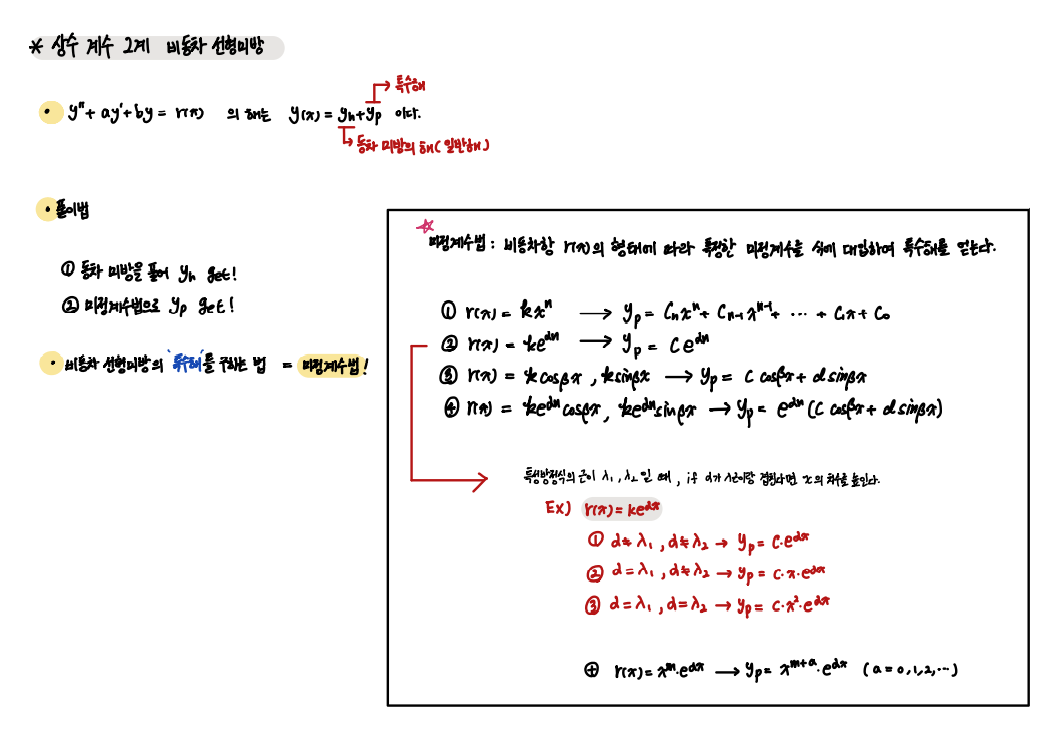 * 상수 계수 2계 비동차 선형미방
• y" + ay' + by = r(x) 의 해는 y(x) = yₕ + yₚ 이다.
→ 특수해
→ 동차 미방의 해( 일반해 )
• 풀이법
① 동차 미방을 풀어 yₕ get!
② 미정계수법으로 yₚ get!
• 비동차 선형미방의 '특수해'를 구하는 법 = 미정계수법!
☆
미정계수법 : 비동차항 r(x)의 형태에 따라 특정한 미정계수를 식에 대입하여 특수해를 얻는다.
① r(x) = kxⁿ → yₚ = Cₙxⁿ + Cₙ₋₁xⁿ⁻¹ + ⋯ + C₁x + C₀
② r(x) = ke^αx → yₚ = Ce^αx
③ r(x) = kcosβx , ksinβx → yₚ = C cosβx + d sinβx
④ r(x) = ke^αx cosβx, ke^αx sinβx → yₚ = e^αx (C cosβx + d sinβx)
특성방정식의 근이 λ₁, λ₂ 일 때 , if α가 λ근이랑 겹친다면 x의 차수를 높인다.
Ex) r(x) = ke^αx
① α ≠ λ₁ , α ≠ λ₂ → yₚ = C·e^αx
② α = λ₁ , α ≠ λ₂ → yₚ = C·x·e^αx
③ α = λ₁ , α = λ₂ → yₚ = C·x²·e^αx
⊕ r(x) = x^m·e^αx → yₚ = x^m+a·e^αx ( a = 0, 1, 2, ⋯ )